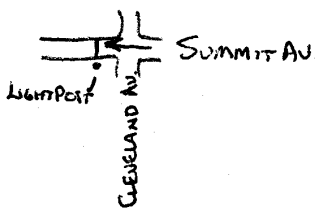 SUMMIT AV
LIGHTPOST
CLEVELAND AV.